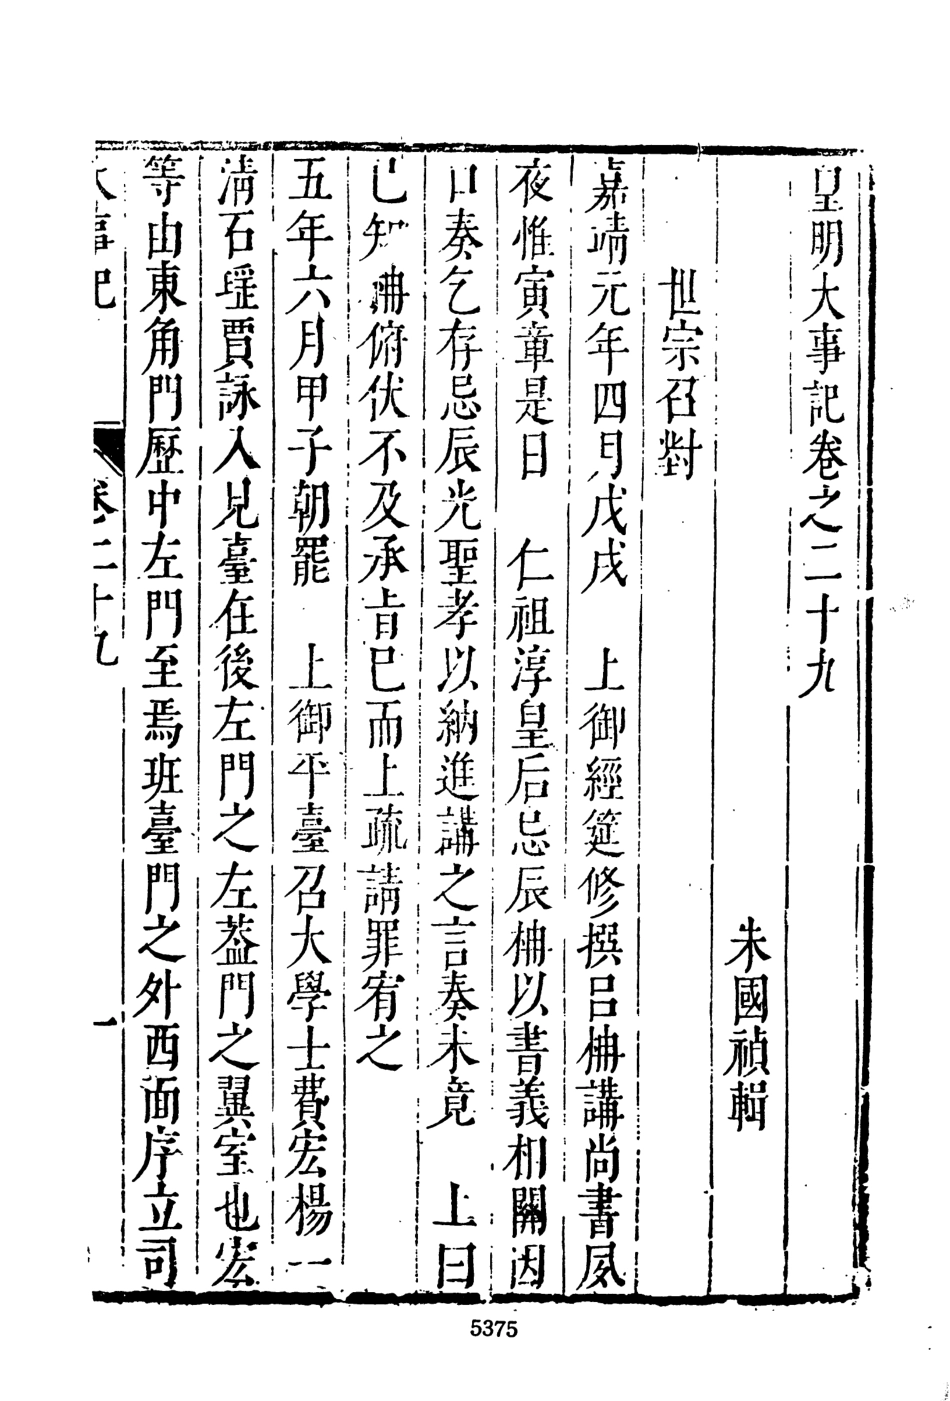 皇明大事記卷之二十九
朱國禎輯
世宗召對
嘉靖元年四月戊戌　上御經筵修撰呂柟講尚書夙
夜惟寅章是日　仁祖淳皇后忌辰柟以書義相關因
口奏乞存忌辰光聖孝以納進講之言奏未竟　上曰
已知柟俯伏不及承旨已而上疏請罪宥之
五年六月甲子朝罷　上御平臺召大學士費宏楊一
清石珤賈詠入見臺在後左門之左葢門之翼室也宏
等由東角門歷中左門至焉班臺門之外西面序立司
大事記　卷二十九　一
5375